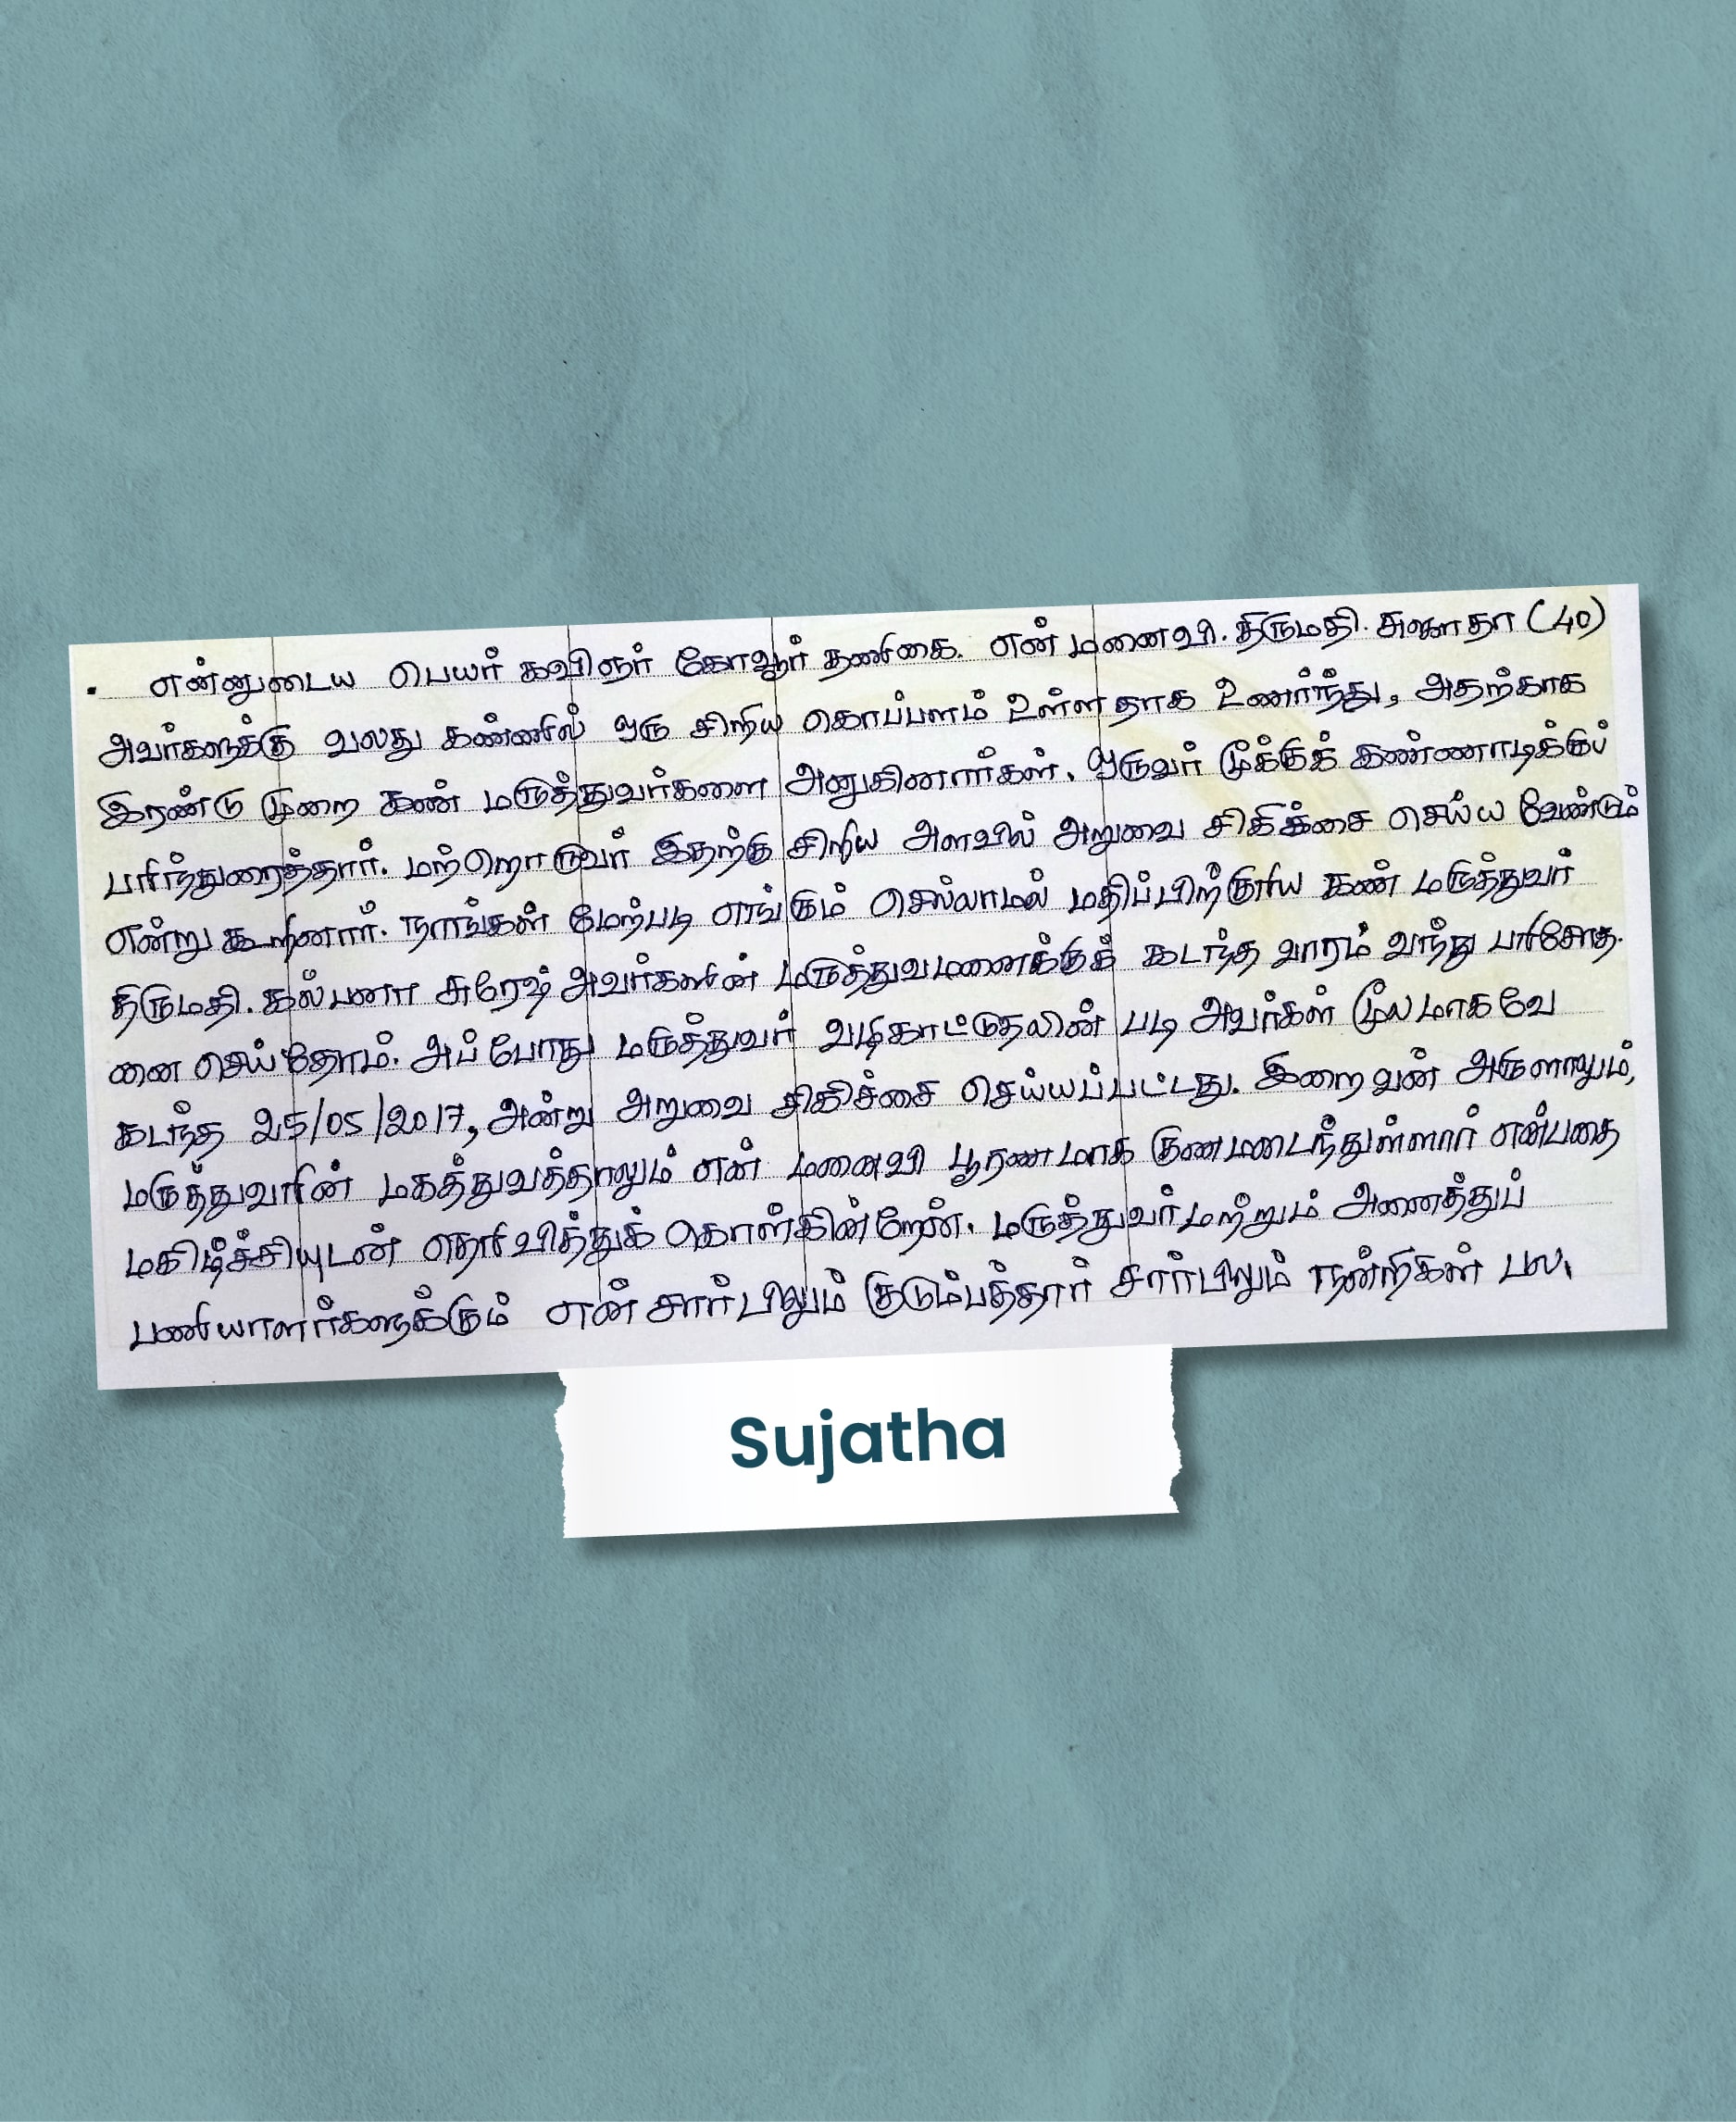 என்னுடைய பெயர் கவிஞர் கோவூர் தணிகை. என் மனைவி. திருமதி. சுஜாதா (40)
அவர்களுக்கு வலது கண்ணில் ஒரு சிறிய கொப்பளம் உள்ளதாக உணர்ந்து, அதற்காக
இரண்டு முறை கண் மருத்துவர்களை அனுகினார்கள். ஒருவர் மூக்குக் கண்ணாடிக்குப்
பரிந்துரைத்தார். மற்றொருவர் இதற்கு சிறிய அளவில் அறுவை சிகிக்சை செய்ய வேண்டும்
என்று கூறினார். நாங்கள் மேற்படி எங்கும் செல்லாமல் மதிப்பிற்குரிய கண் மருத்துவர்
திருமதி. கல்பனா சுரேஷ் அவர்களின் மருத்துவமனைக்குக் கடந்த வாரம் வந்து பரிசோத-
னை செய்தோம். அப்போது மருத்துவர் வழிகாட்டுதலின் படி அவர்கள் மூலமாகவே
கடந்த 25/05/2017, அன்று அறுவை சிகிச்சை செய்யப்பட்டது. இறைவன் அருளாலும்,
மருத்துவரின் மகத்துவத்தாலும் என் மனைவி பூரணமாக குணமடைந்துள்ளார் என்பதை
மகிழ்ச்சியுடன் தெரிவித்துக் கொள்கின்றேன். மருத்துவர் மற்றும் அனைத்துப்
பணியாளர்களுக்கும் என் சார்பிலும் குடும்பத்தார் சார்பிலும் நன்றிகள் பல.
Sujatha